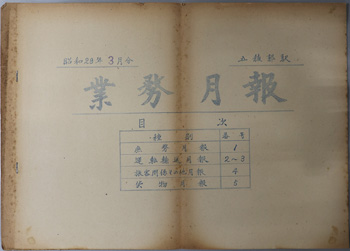 昭和29年3月分
業務月報
目次
種別 番号
庶務月報 1
運転輸送月報 2~3
旅客関係その他月報 4
貨物月報 5